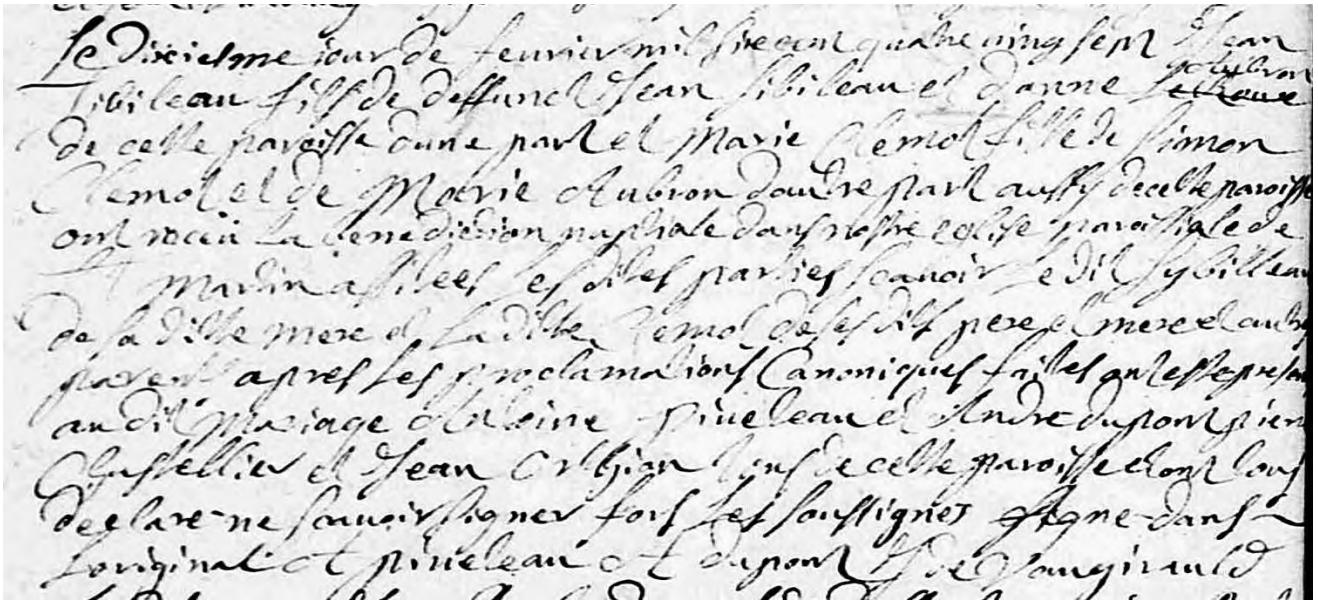 Le dixiesme jour de feuvrier mil six cent quatre ving sept Jean
Sibileau fils de deffunct Jean Sibileau et d'anne goubron
de cette paroisse dune part et Marie Clemot fille de simon
Clemot et de Marie Aubron dautre part aussy de cette paroisse
ont receu La benediction nuptiale dans nostre eglise paroissiale de
St Martin assistees Les dites parties scavoir Le dit Sybilleau
de sa ditte mere et La ditte Clemot de ses dits pere et mere et autres
parents apres Les proclamations Canoniques faites ont esté present
au dit Mariage Antoine pineleau et Andre dupont pierre
Chastellier et Jean tous de cette paroisse et ont tous
declare ne scavoir signer fors Les soussignes signe dans
Loriginal A pineleau A dupont J de Vaugirauld